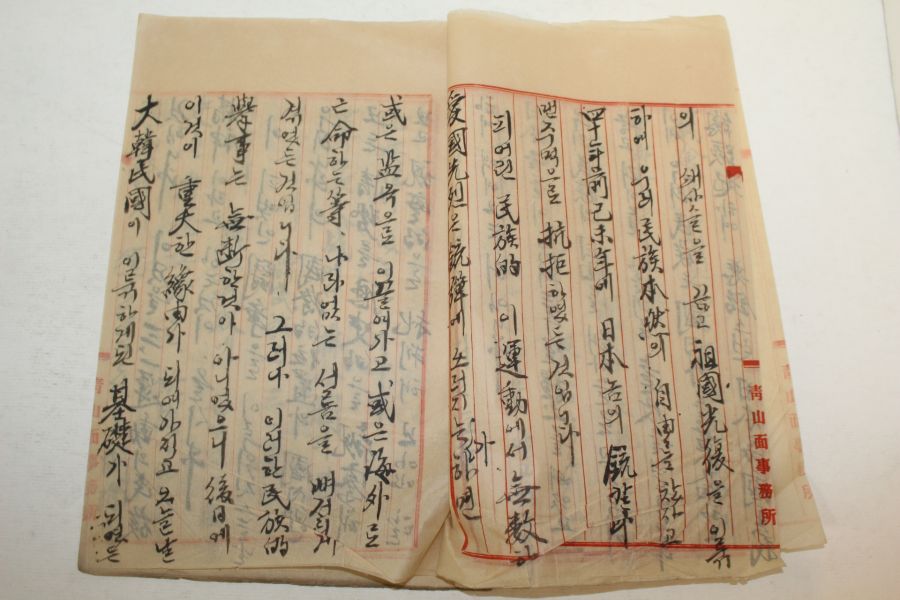 의 쇄사슬을 끊고 祖國光復을 이룩
하여 우리 民族本然의 自由를 찾자고
四十年前 己未年에 日本놈의 銃칼
맨주먹으로 抗拒하였든것입니다
피어린 民族的 이 運動에서 無數한
愛國先烈은 銃彈에 쓰러지는가 하면
靑山面事務所
或은 監獄으로 이끌여가고 或은 海外로
亡命하는 等 나라없는 서름을
격었든것입니다. 그러나 이러한 民族的
擧事는 無斷한것이 아니였으니 後日에
이것이 重大한 緣由가 되여가지고 오늘날
大韓民國이 이룩하게된 基礎가 되였든